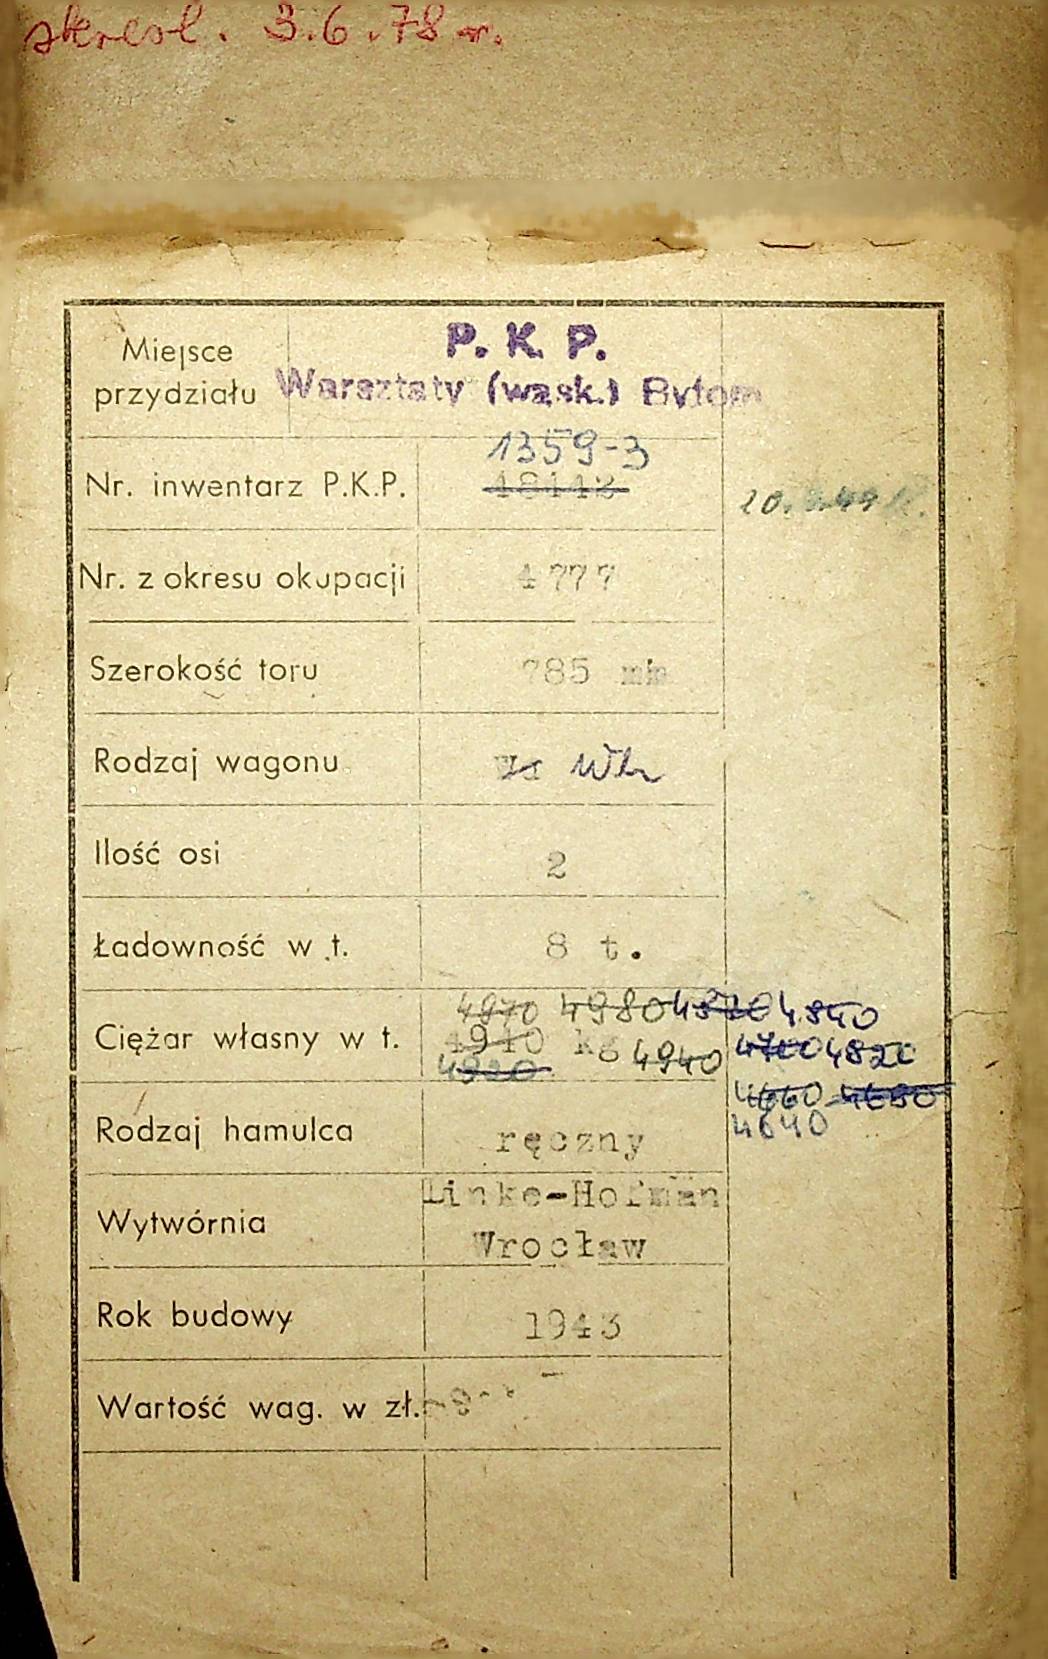 skreśl. 3.6.78 r.
Miejsce przydziału
P. K. P.
Warsztaty (wąsk.) Bytom
1359-3
Nr. inwentarz P.K.P. 18112
Nr. z okresu okupacji 4777
Szerokość toru 785 mm
Rodzaj wagonu Wh
Ilość osi 2
Ładowność w t. 8 t.
4970 4980 4840
Ciężar własny w t. 4910 kg 4940 4700 4820
4660 4680
4640
Rodzaj hamulca ręczny
Wytwórnia Linke-Hofman
Wrocław
Rok budowy 1943
Wartość wag. w zł.